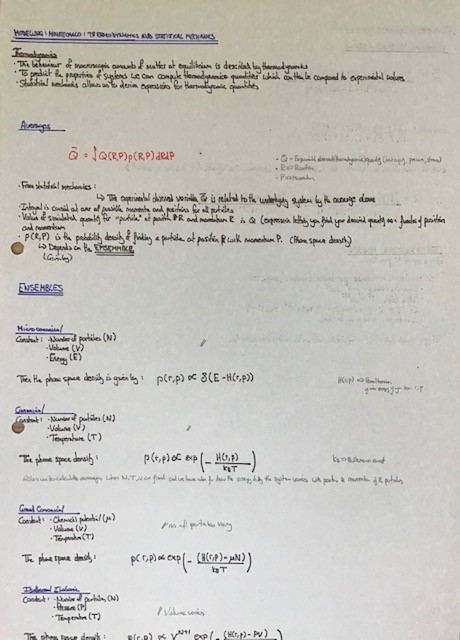 MODELLING: MONTECARLO: THERMODYNAMICS AND STATISTICAL MECHANICS
Thermodynamics
· The behaviour of macroscopic amounts of matter at equilibrium is described by thermodynamics
· To predict the properties of systems we can compute thermodynamic quantities which can then be compared to experimental values
· Statistical mechanics allows us to derive expressions for thermodynamic quantities
Averages
Q̄ = ∫Q(R,P)ρ(R,P)dRdP
· Q = Experimental observed thermodynamic quantity (entropy, pressure,
R = Position
P = momentum
· From statistical mechanics:
↳ The experimental observed variable, Q̄ is related to the underlying system by the average above
· Integral is carried out over all possible momenta and positions for all particles
· Value of simulated quantity for particle at position R and momentum P is Q (expression letting you find your desired quantity as a function of position and momentum
· ρ(R,P) is the probability density of finding a particle at position R with momentum P. (Phase space density)
↳ Depends on the ENSEMBLE
ENSEMBLES
Microcanonical
Constant: · Number of particles (N)
· Volume (V)
· Energy (E)
Then the phase space density is given by: ρ(r,p) ∝ δ(E - H(r,p))
H(r,p) => Hamiltonian
given r, p
Canonical
Constant: · Number of particles (N)
· Volume (V)
· Temperature (T)
The phase space density: ρ(r,p) ∝ exp(- H(r,p) / k_BT)
k_B => Boltzmann const
Allows us to calculate averages when N,T,V are fixed and we have a
Grand Canonical
Constant: · Chemical potential (μ)
· Volume (V)
· Temperature (T)
No. of particles vary
The phase space density: ρ(r,p) ∝ exp(- (H(r,p) - μN) / k_BT)
Isothermal Isobaric
Constant: · Number of particles (N)
· Pressure (P)
· Temperature (T)
Volume varies
The phase space density: ρ(r,p) ∝ V^N+1 exp(- (H(r,p) - PV)